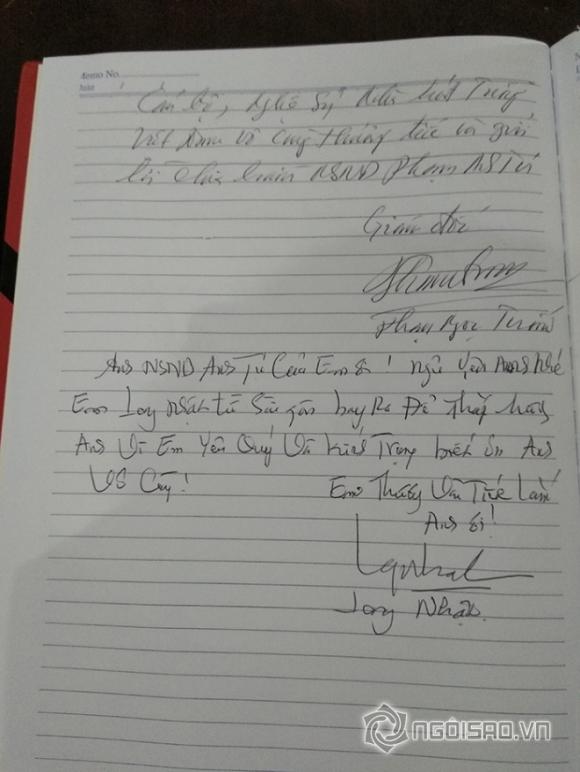 Memo No.
Date
Cán bộ, nghệ sỹ Nhà hát Tuồng
Việt Nam vô cùng thương tiếc và gửi
lời chia buồn NSND Phạm
Giám đốc
Phạm Ngọc Tuấn
Anh NSND Anh Tú Của Em ơi ! ngủ yên Anh nhé
Em Long Nhật từ Sài gòn bay Ra Để Thắp hương
Anh Vì Em Yêu Quý Và Kính Trọng biết ơn Anh
Vô Cùng!
Em Thương Và Tiếc Lắm
Anh ơi!
Long Nhật
NGÔISAO.VN